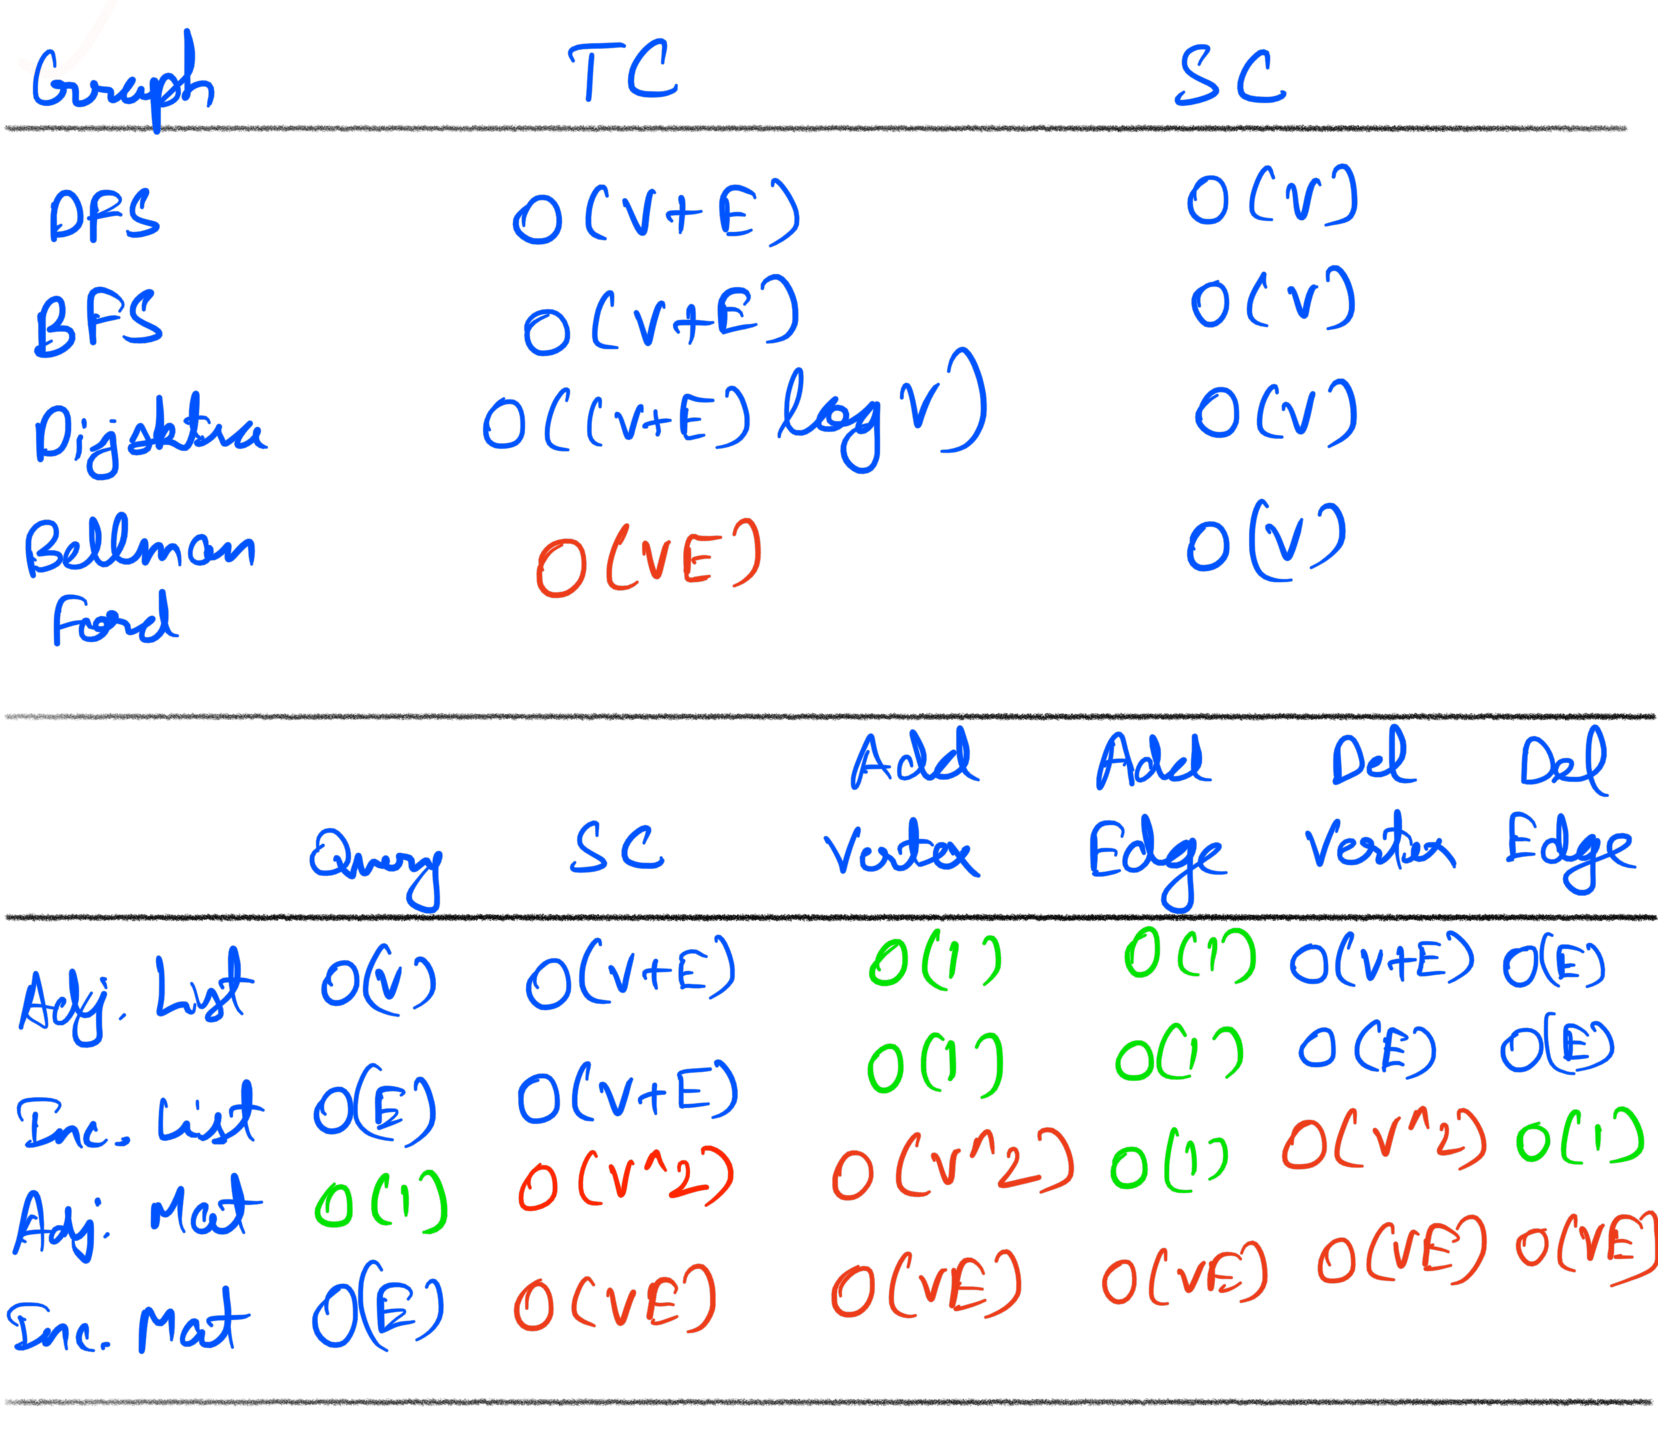 Graph TC SC
DFS O(V+E) O(V)
BFS O(V+E) O(V)
Dijsktra O((V+E) log V) O(V)
Bellman O(VE) O(V)
Ford
Add Add Del Del
Query SC Vertex Edge Vertex Edge
Adj. List O(V) O(V+E) O(1) O(1) O(V+E) O(E)
Inc. List O(E) O(V+E) O(1) O(1) O(E) O(E)
Adj. Mat O(1) O(V^2) O(V^2) O(1) O(V^2) O(1)
Inc. Mat O(E) O(VE) O(VE) O(VE) O(VE) O(VE)